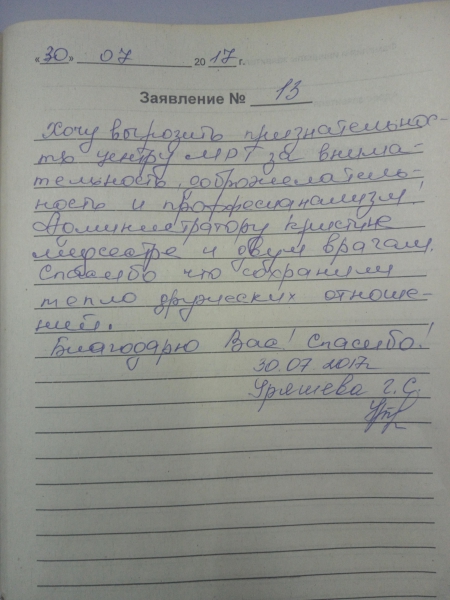 «30» 07 2017 г.
Заявление № 13
Хочу вырозить признательнос-
ть центру МРТ за внима-
тельность, доброжелатель-
ность и професианализм!
Администратору Кристине
медсестре и двум врачам.
Спасибо что сохранили
тепло дружеских отноше-
ний.
Благодарю Вас! Спасибо!
30.07.2017г
Уряшева Г.С.